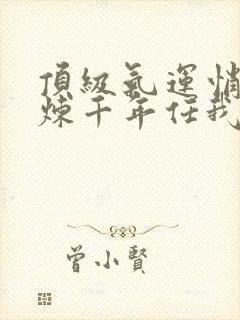 頂級氣運悄
煉千年任我
曾小賢